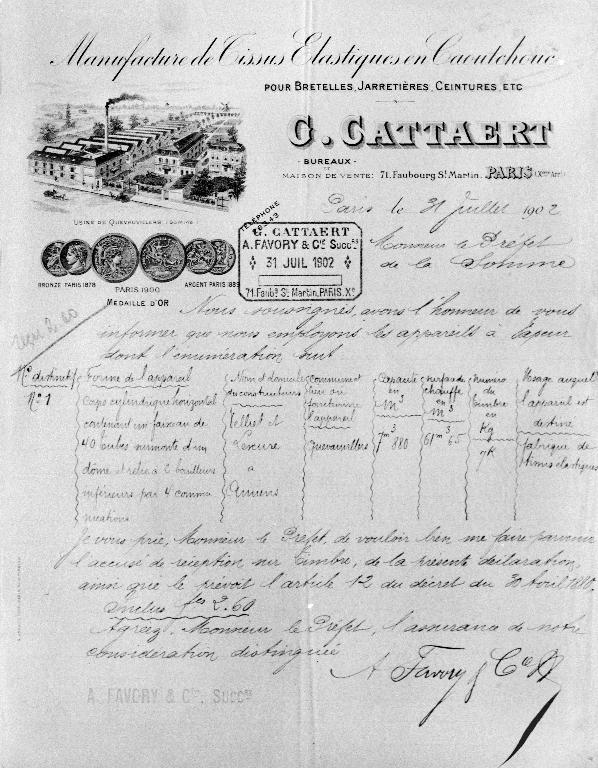 Manufacture de Tissus Elastiques en Caoutchouc
POUR BRETELLES, JARRETIÈRES, CEINTURES, ETC
G. CATTAERT
- BUREAUX -
ET
MAISON DE VENTE: 71. Faubourg St Martin. PARIS (Xème Arrt)
USINE DE QUEVAUVILLERS (SOMME)
TÉLÉPHONE
G. CATTAERT
A. FAVORY & Cie Succrs
31 JUIL 1902
71. Faubg St Martin, PARIS. Xe
BRONZE PARIS 1878
PARIS 1900
ARGENT PARIS 1889
MÉDAILLE D'OR
Paris le 31 Juillet 1902
Monsieur le Préfet
de la Somme
reçu 2,60
Nous soussignés, avons l'honneur de vous
informer que nous employons les appareils à vapeur
dont l'énumération suit
No distinctif
No 1
Forme de l'appareil
Corps cylindrique horizontal
contenant un faisceau de
40 tubes surmonté d'un
dôme et relié à 2 bouilleurs
inférieurs par 4 commu
nications
Nom et domicile
du constructeurs
Tellier et
Lescure
à
Amiens
Commune et
lieu où
fonctionne
l'appareil
Quevauvillers
Capacité
en
M3
7m3 880
Surface de
chauffe
en
M3
61m3 65
Numéro
du
timbre
en
Kg
7K
Usage auquel
l'appareil est
destiné
fabrique de
tissus élastiques
Je vous prie, Monsieur le Préfet, de vouloir bien me faire parvenir
l'accusé de réception sur timbre, de la présente déclaration,
ainsi que le prévoit l'article 12 du décret du 30 avril 1880.
Inclus frs 2.60
Agréez, Monsieur le Préfet, l'assurance de notre
considération distinguée
A Favory & Cie
A. FAVORY & Cie, Succrs